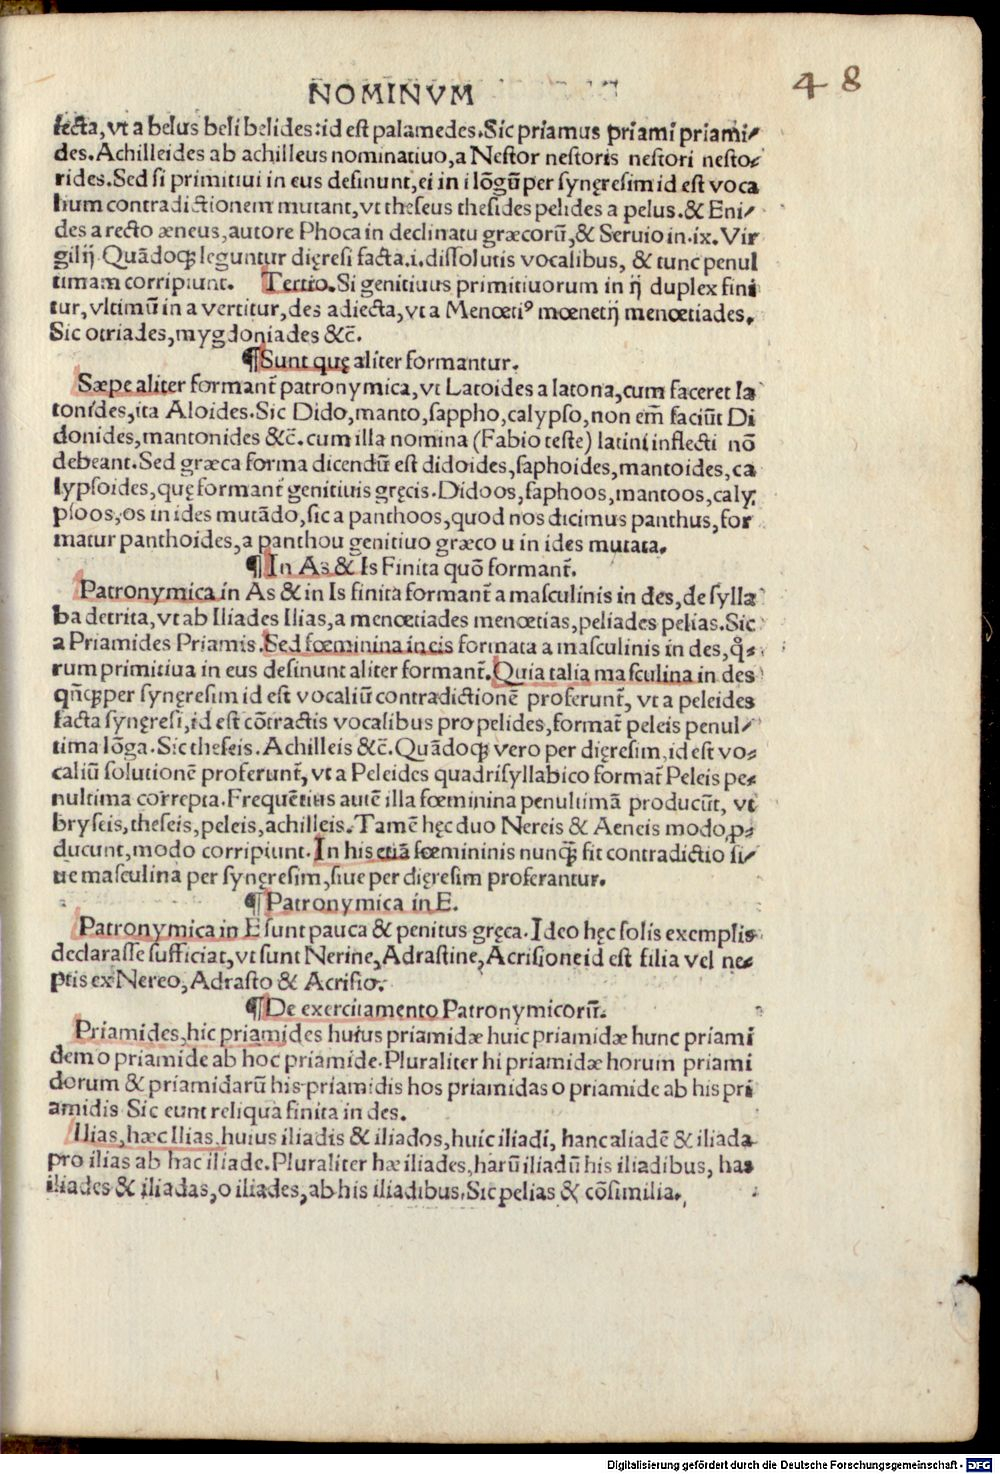 NOMINVM
48
iecta, vt a belus beli belides: id est palamedes. Sic priamus priami priami⸗
des. Achilleides ab achilleus nominatiuo, a Nestor nestoris nestori nesto⸗
rides. Sed si primitiui in eus desinunt, ei in i lõgũ per synęresim id est voca
lium contradictionem mutant, vt theseus thesides pelides a pelus. & Eni⸗
des a recto æneus, autore Phoca in declinatu græcorũ, & Seruio in .ix. Vir
gilij. Quãdoqꝫ leguntur dięresi facta .i. dissolutis vocalibus, & tunc penul
timam corripiunt. Tertio. Si genitiuus primitiuorum in ij duplex fini
tur, vltimũ in a vertitur, des adiecta, vt a Menœtiꝰ mœnetij menœtiades.
Sic otriades, mygdoniades &c̃.
¶Sunt quę aliter formantur.
Sæpe aliter formant̃ patronymica, vt Latoides a latona, cum faceret la
tonides, ita Aloides. Sic Dido, manto, sappho, calypso, non em̃ faciũt Di
donides, mantonides &c̃. cum illa nomina (Fabio teste) latini inflecti nõ
debeant. Sed græca forma dicendũ est didoides, saphoides, mantoides, ca
lypsoides, quę formant̃ genitiuis gręcis. Didoos, saphoos, mantoos, caly,
psoos, os in ides mutãdo, sic a panthoos, quod nos dicimus panthus, for
matur panthoides, a panthou genitiuo græco u in ides mutata.
¶In As & Is Finita quõ formant̃.
Patronymica in As & in Is finita formant̃ a masculinis in des, de sylla
ba detrita, vt ab Iliades Ilias, a menœtiades menœtias, peliades pelias. Sic
a Priamides Priamis. Sed fœminina in eis formata a masculinis in des, q̊⸗
rum primitiua in eus desinunt aliter formant̃. Quia talia masculina in des
qñqꝫ per synęresim id est vocaliũ contradictionẽ proferunt̃, vt a peleides
facta synęresi, id est cõtractis vocalibus pro pelides, format̃ peleis penul⸗
tima lõga. Sic theseis. Achilleis &c̃. Quãdoqꝫ vero per dięresim, id est vo⸗
caliũ solutionẽ proferunt̃, vt a Peleides quadrisyllabico format̃ Peleis pe⸗
nultima correpta. Frequẽtius autẽ illa fœminina penultimã producũt, vt
bryseis, theseis, peleis, achilleis. Tamẽ hęc duo Nereis & Aeneis modo, ꝓ⸗
ducunt, modo corripiunt. In his etiã fœmininis nunqꝫ̃ fit contradictio, si⸗
ue masculina per synęresim, siue per dięresim proferantur.
¶Patronymica in E.
Patronymica in E sunt pauca & penitus gręca. Ideo hęc solis exemplis
declarasse sufficiat, vt sunt Nerine, Adrastine, Acrisione id est filia vel ne⸗
ptis ex Nereo, Adrasto & Acrisio.
¶De exercitamento Patronymicorũ.
Priamides, hic priamides huius priamidæ huic priamidæ hunc priami
dem o priamide ab hoc priamide. Pluraliter hi priamidæ horum priami
dorum & priamidarũ his priamidis hos priamidas o priamide ab his pri
amidis Sic eunt reliqua finita in des.
Ilias, hæc Ilias, huius iliadis & iliados, huic iliadi, hanc aliadẽ & iliada
pro ilias ab hac iliade. Pluraliter hæ iliades, harũ iliadũ his iliadibus, has
iliades & iliadas, o iliades, ab his iliadibus. Sic pelias & cõsimilia.
Digitalisierung gefördert durch die Deutsche Forschungsgemeinschaft - DFG